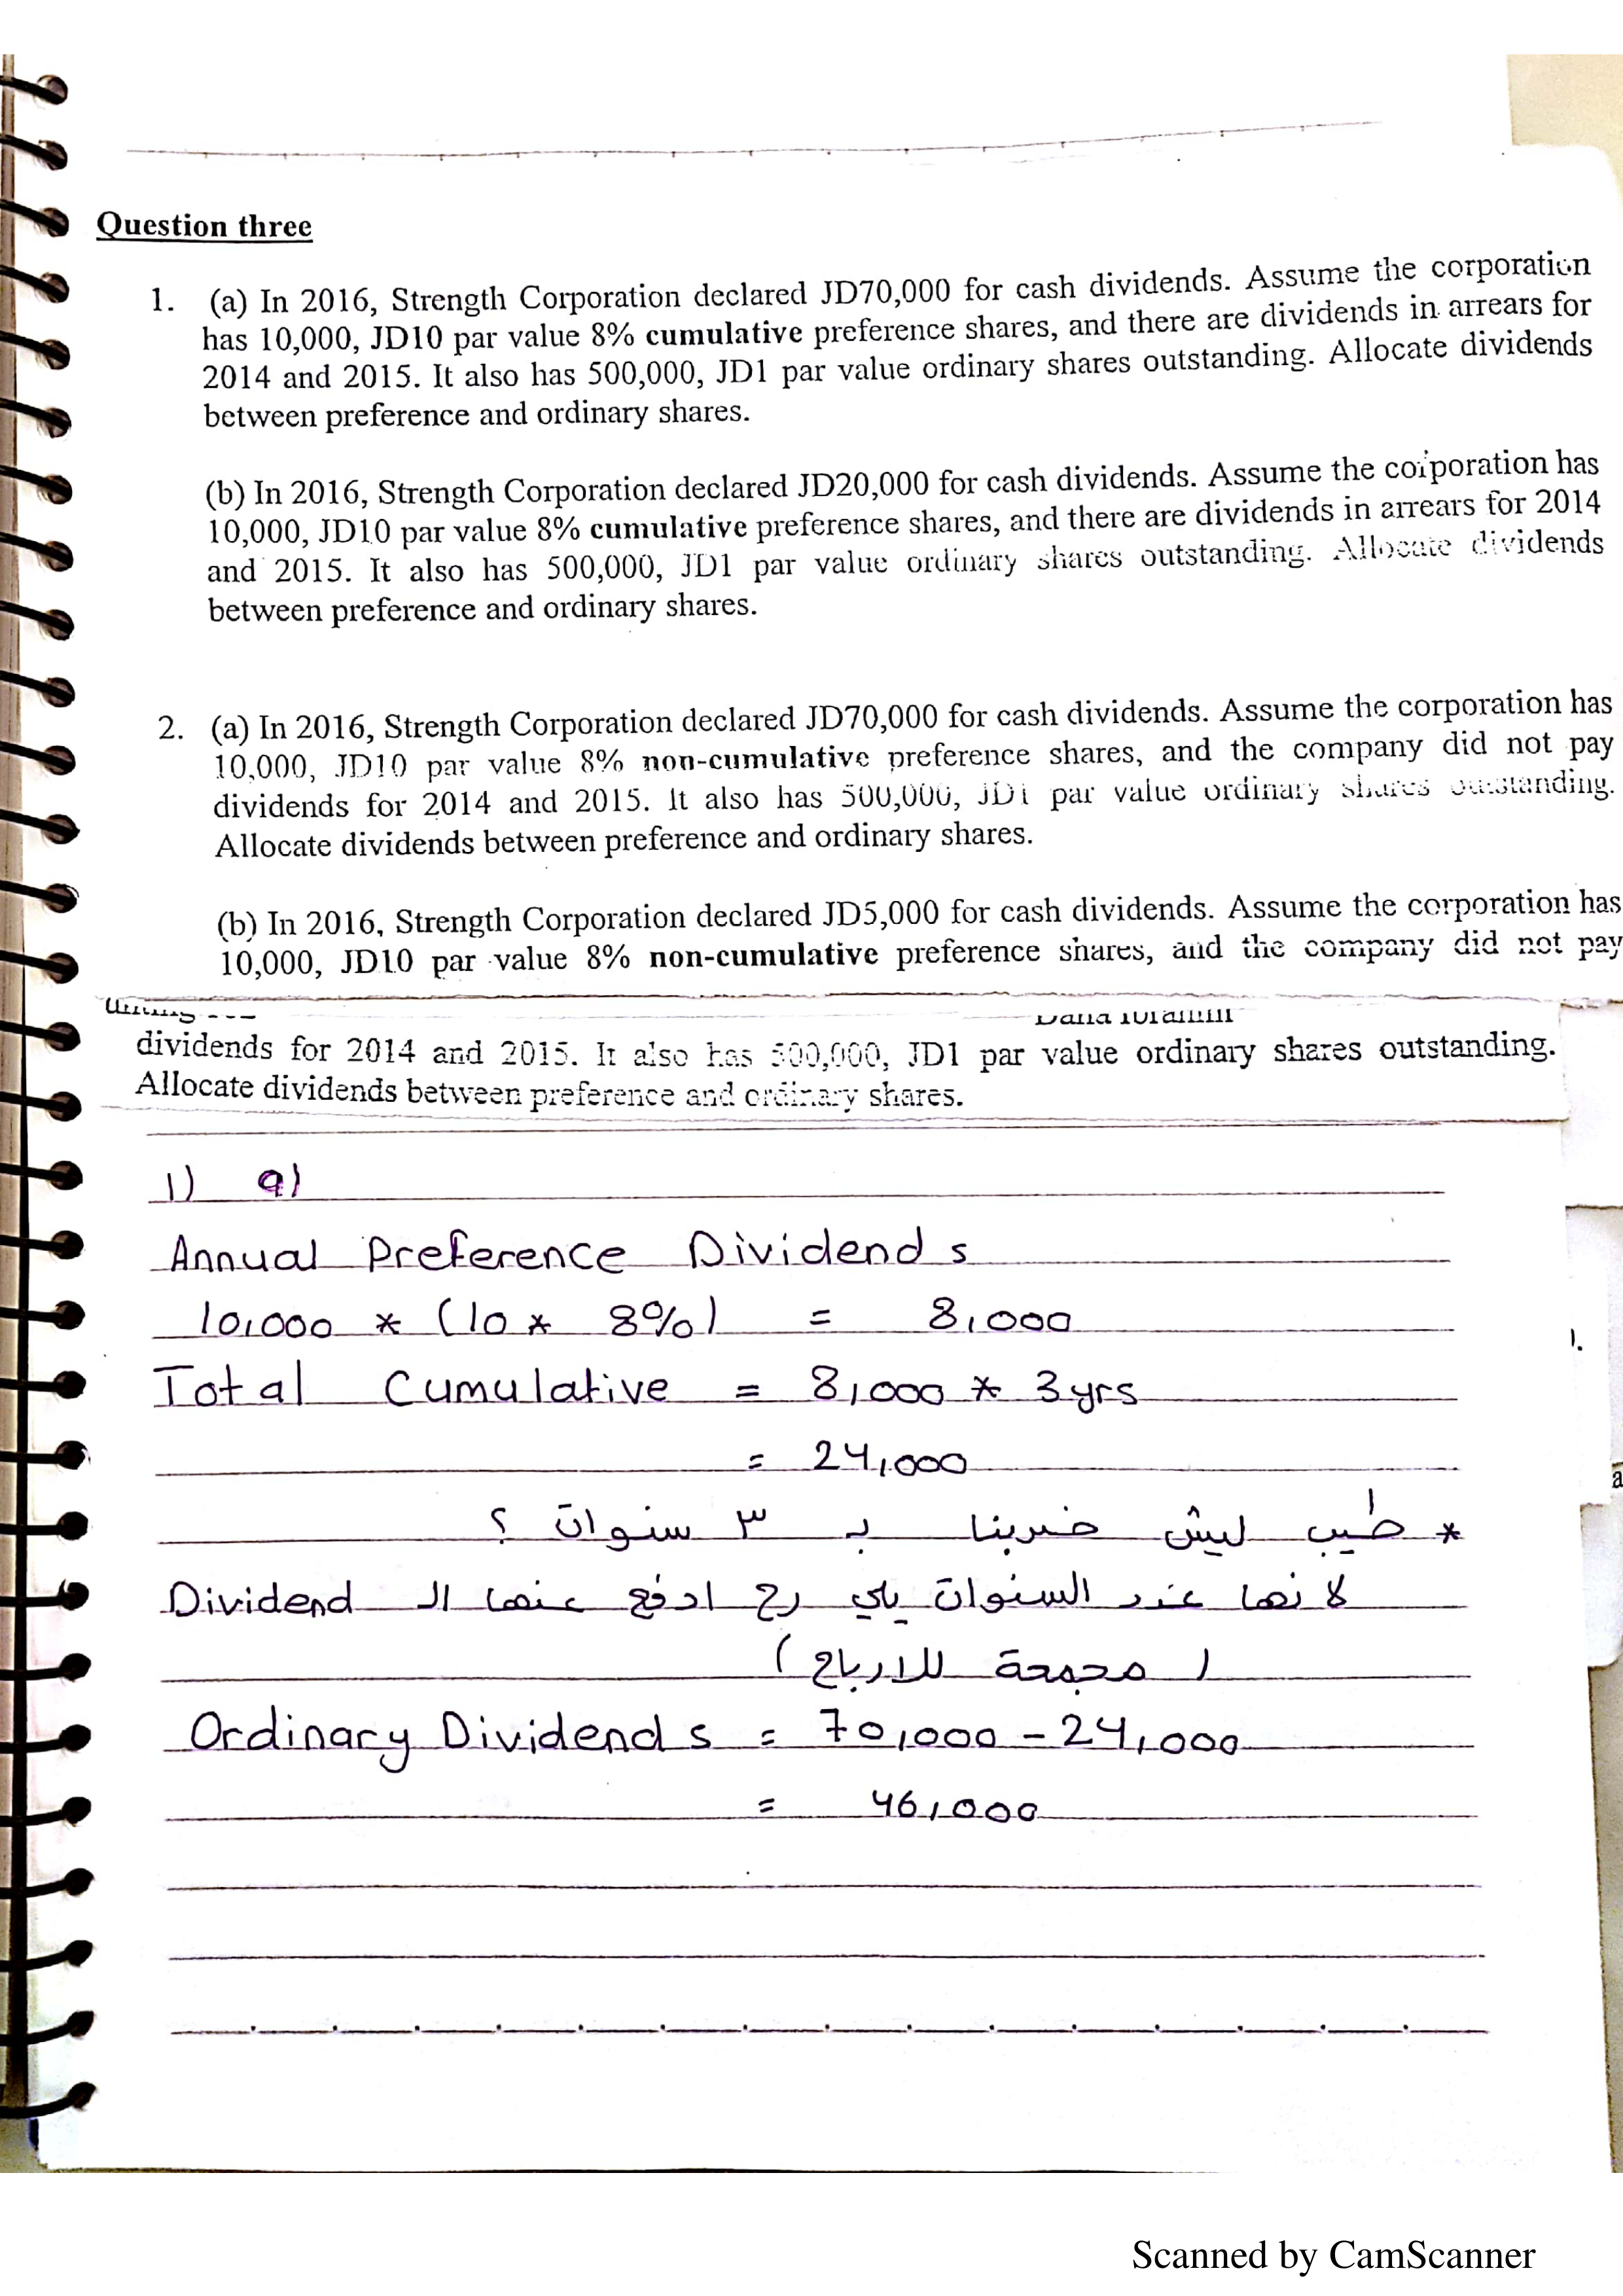 Question three
1. (a) In 2016, Strength Corporation declared JD70,000 for cash dividends. Assume the corporation
has 10,000, JD10 par value 8% cumulative preference shares, and there are dividends in arrears for
2014 and 2015. It also has 500,000, JD1 par value ordinary shares outstanding. Allocate dividends
between preference and ordinary shares.
(b) In 2016, Strength Corporation declared JD20,000 for cash dividends. Assume the corporation has
10,000, JD10 par value 8% cumulative preference shares, and there are dividends in arrears for 2014
and 2015. It also has 500,000, JD1 par value ordinary shares outstanding. Allocate dividends
between preference and ordinary shares.
2. (a) In 2016, Strength Corporation declared JD70,000 for cash dividends. Assume the corporation has
10,000, JD10 par value 8% non-cumulative preference shares, and the company did not pay
dividends for 2014 and 2015. It also has 500,000, JD1 par value ordinary shares outstanding.
Allocate dividends between preference and ordinary shares.
(b) In 2016, Strength Corporation declared JD5,000 for cash dividends. Assume the corporation has
10,000, JD10 par value 8% non-cumulative preference shares, and the company did not pay
dividends for 2014 and 2015. It also has 500,000, JD1 par value ordinary shares outstanding.
Allocate dividends between preference and ordinary shares.
1) a)
Annual Preference Dividends
10,000 * (10 * 8%) = 8,000
Total Cumulative = 8,000 * 3 yrs
= 24,000
* طيب ليش ضربنا بـ ٣ سنوات ؟
لانها عدد السنوات يلي رح ادفع عنها الـ Dividend
( مجمعة للارباح )
Ordinary Dividends = 70,000 - 24,000
= 46,000
1.
a
Scanned by CamScanner